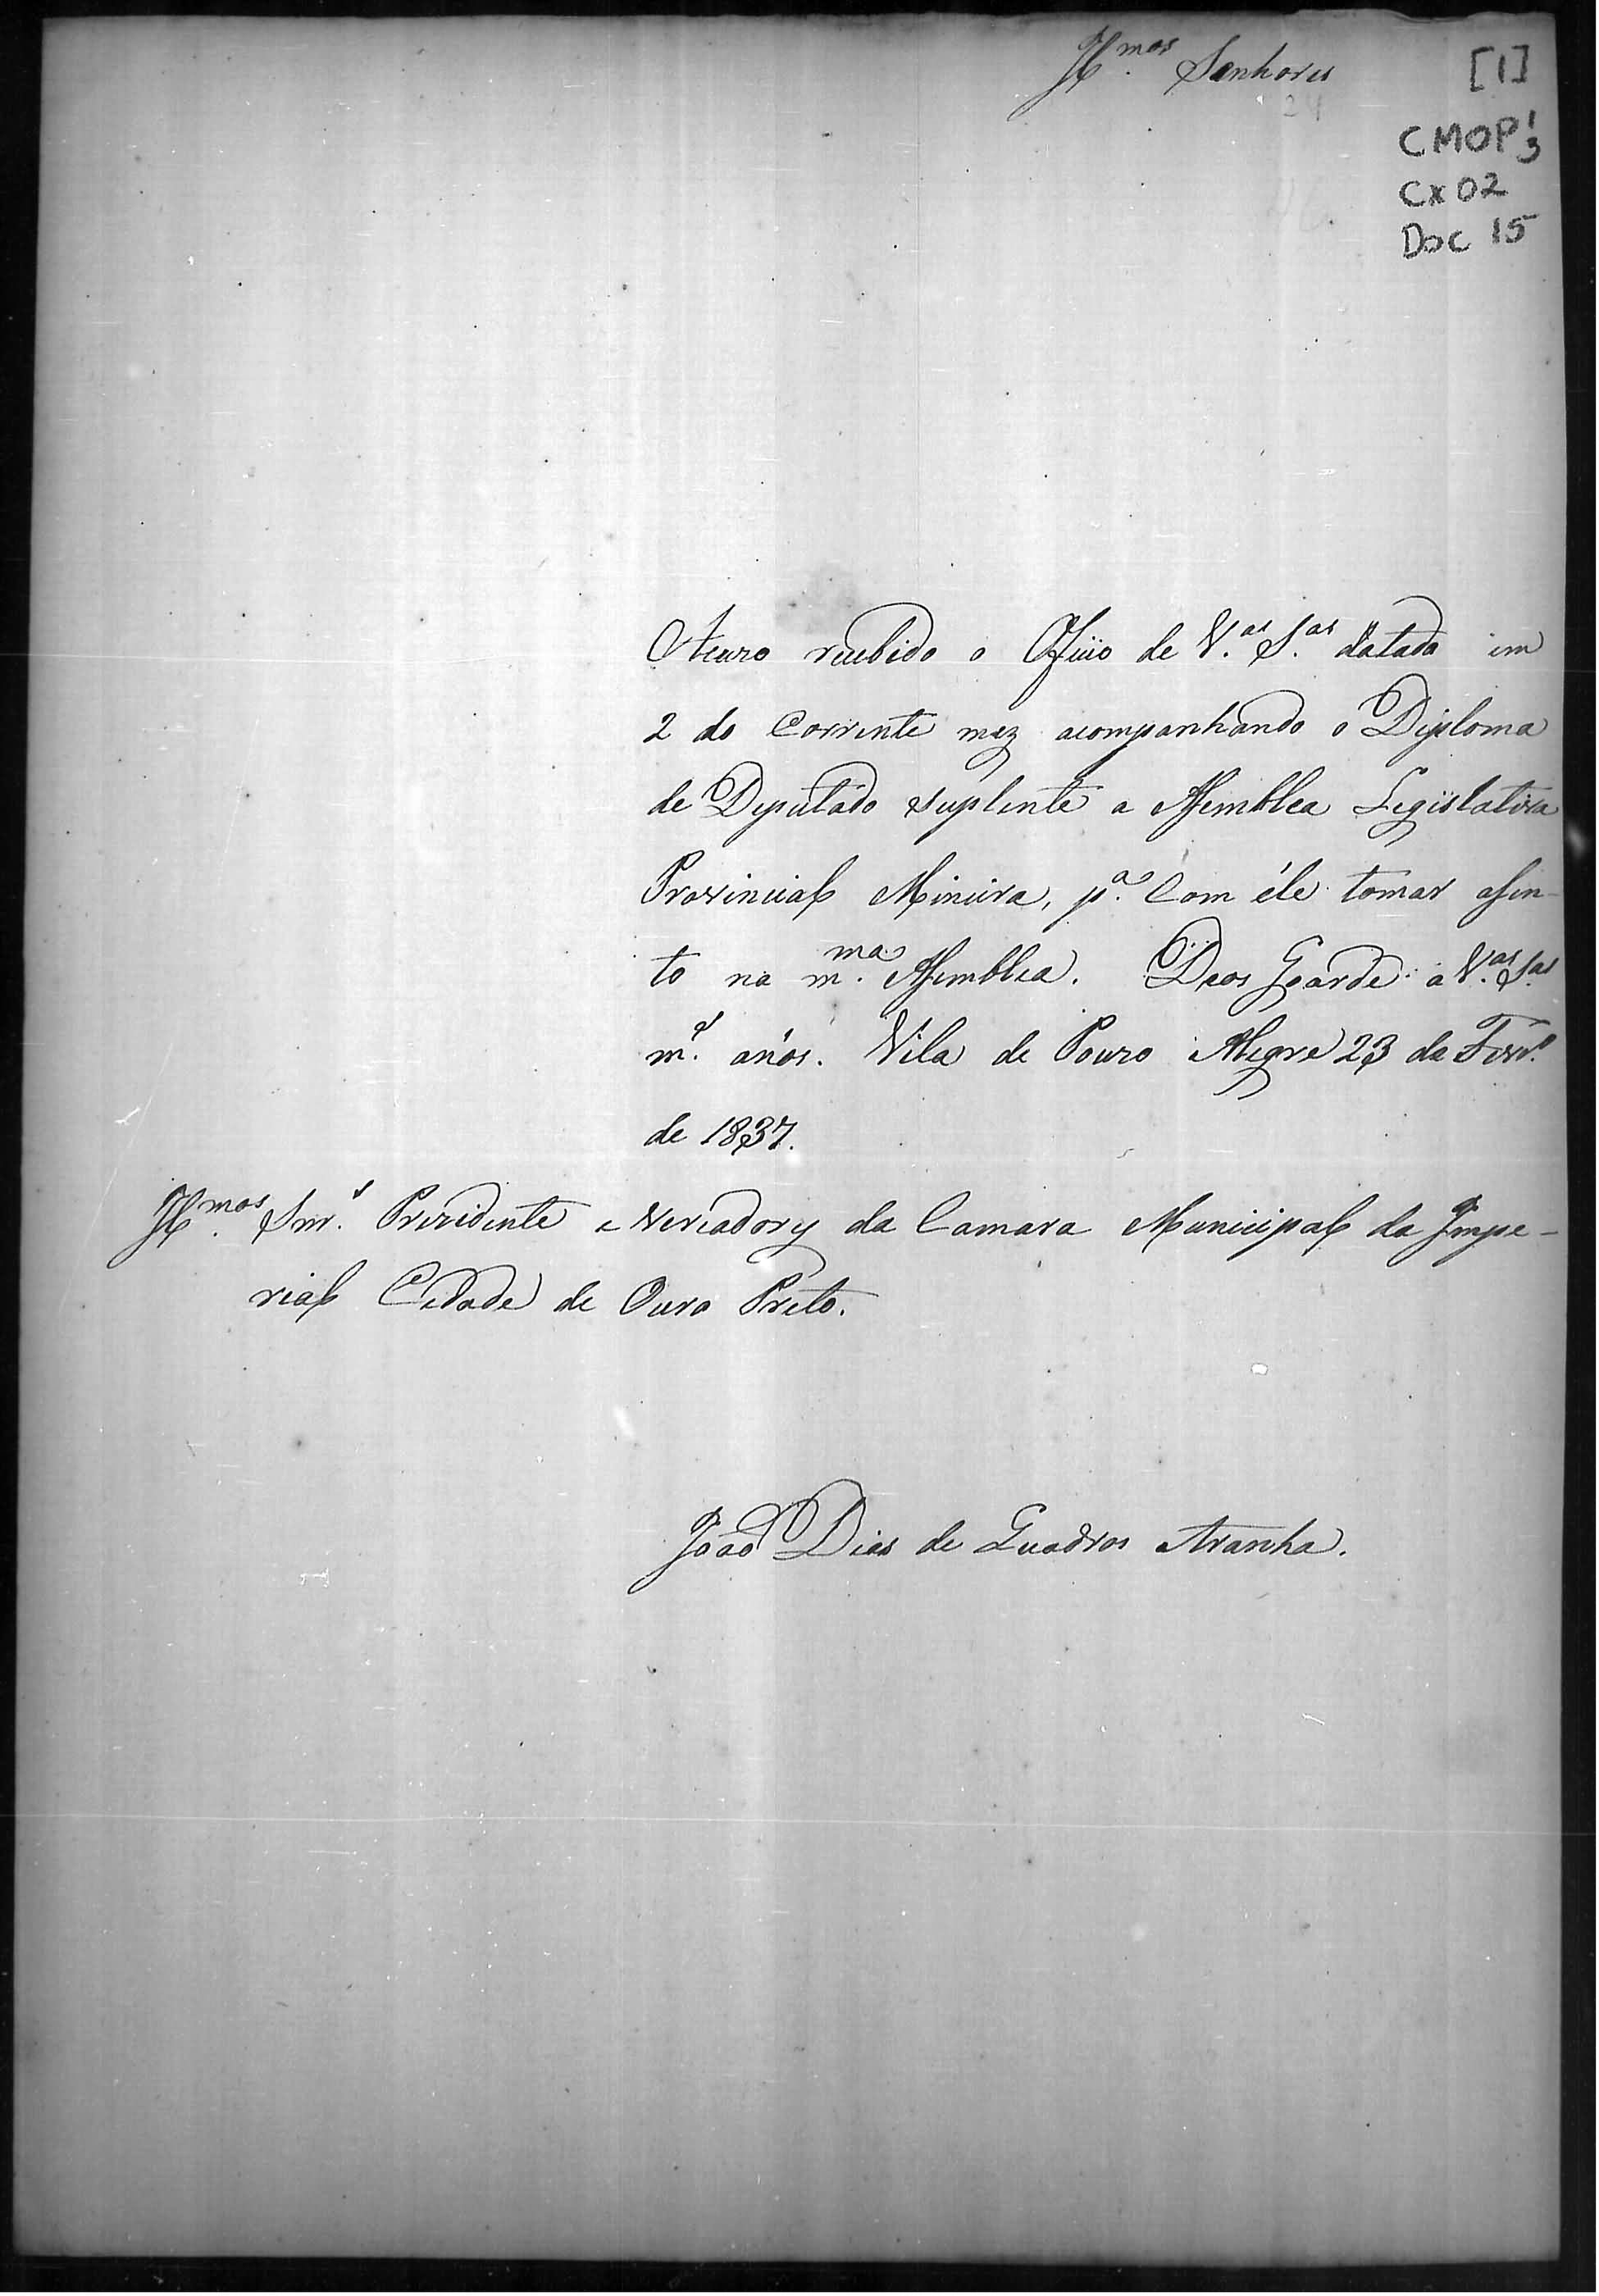 Ill.mos Senhores
[1]
CMOP 1/3
Cx 02
Doc 15
Acuzo recebido o Oficio de V.as S.as datado em
2 do Corrente mez acompanhando o Diploma
de Deputado suplente a Assemblea Legislativa
Provincial Mineira, p.a Com éle tomar assen-
to na m.ma Assemblea. Deos Goarde a V.as S.as
m.s anos. Vila de Pouzo Alegre 23 de Fevr.o
de 1837.
Ill.mos Snr.s Prezidente e Vereadores da Camara Municipal da Impe-
rial Cidade de Ouro Preto.
João Dias de Quadros Aranha.